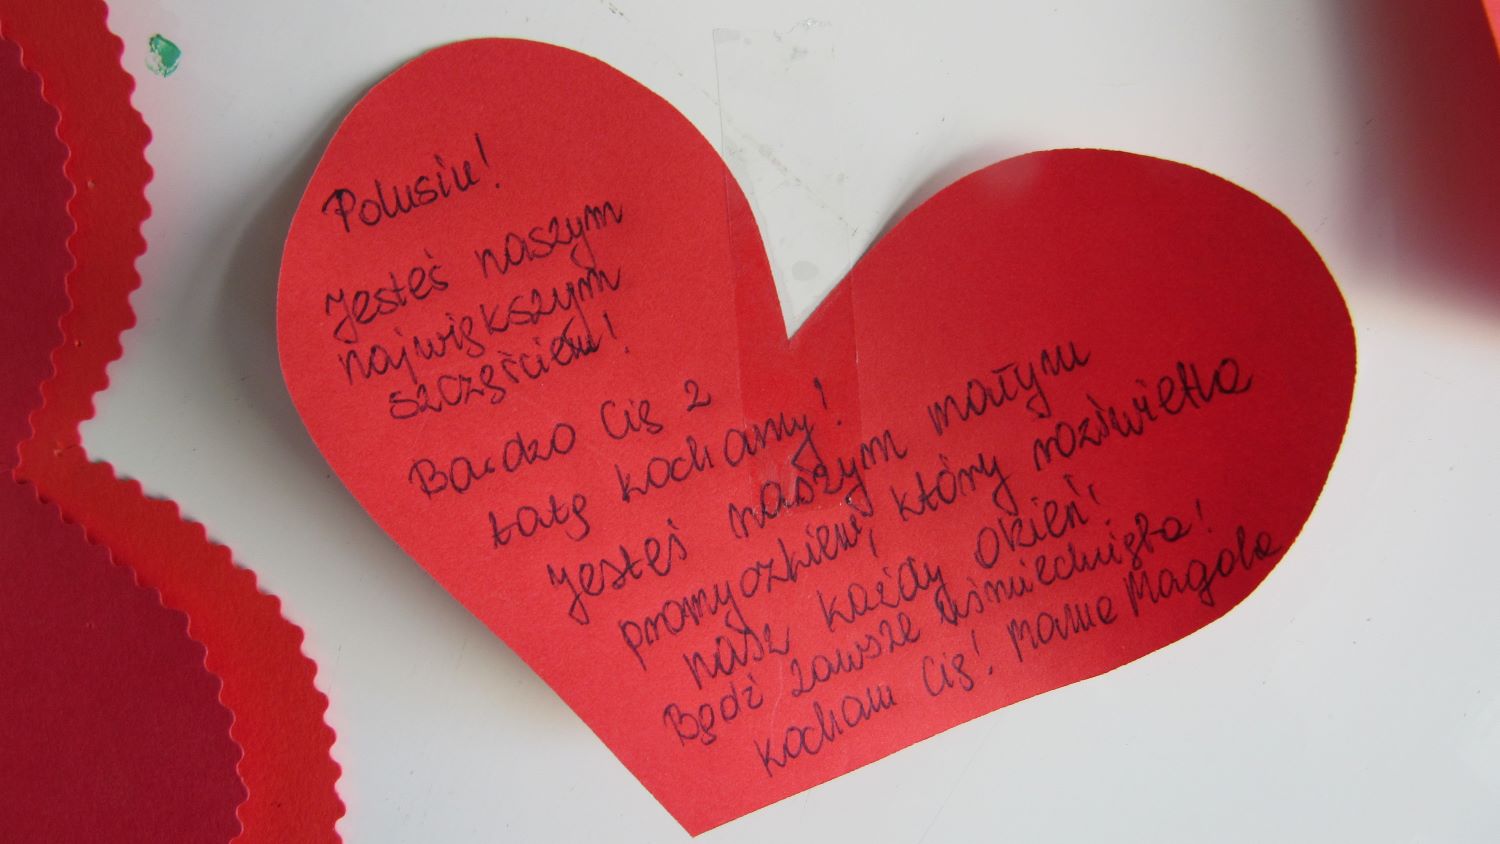 Polusiu!
Jesteś naszym
największym
szczęściem!
Bardzo Cię z
tatą kochamy!
Jesteś naszym małym
promyczkiem, który rozświetla
nasz każdy dzień!
Bądź zawsze uśmiechnięta!
Kocham Cię! Mama Magda